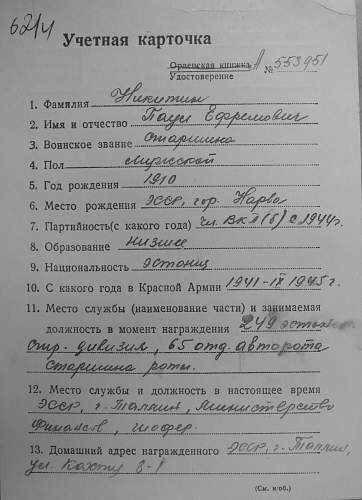 62/ч
Учетная карточка
Орденская книжка А № 553951
Удостоверение
1. Фамилия Никитин
2. Имя и отчество Паул Ефремович
3. Воинское звание старшина
4. Пол мужской
5. Год рождения 1910
6. Место рождения ЭССР, гор. Нарва
7. Партийность (с какого года) чл. ВКП(б) с 1944 г.
8. Образование низшее
9. Национальность эстонец
10. С какого года в Красной Армии 1941-IX 1945 г.
11. Место службы (наименование части) и занимаемая
должность в момент награждения 249 эстонская
стр. дивизия, 65 отд. авторота
старшина роты.
12. Место службы и должность в настоящее время
ЭССР, г. Таллин, Министерство
Финансов, шофер.
13. Домашний адрес награжденного ЭССР, г. Таллин,
ул. 8-1
(См. н/об.)